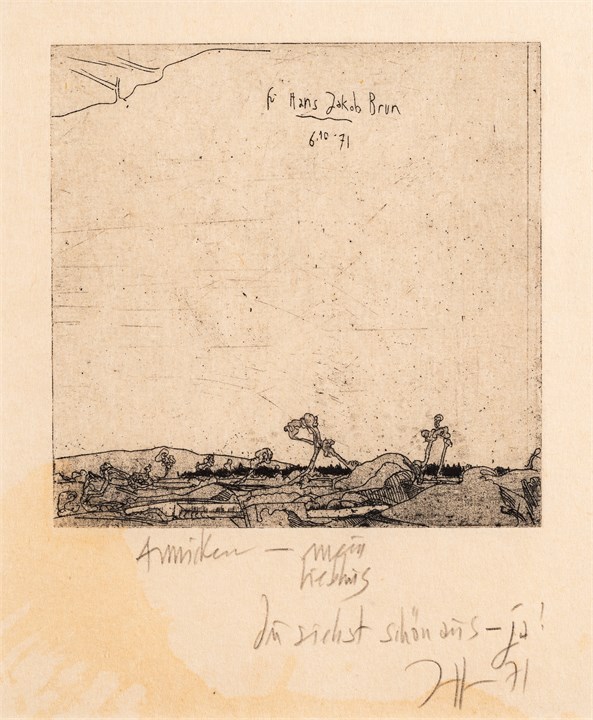 für Hans Jakob Brun
6.10.71
— mein
Liebling
Du siehst schön aus — ja!
71